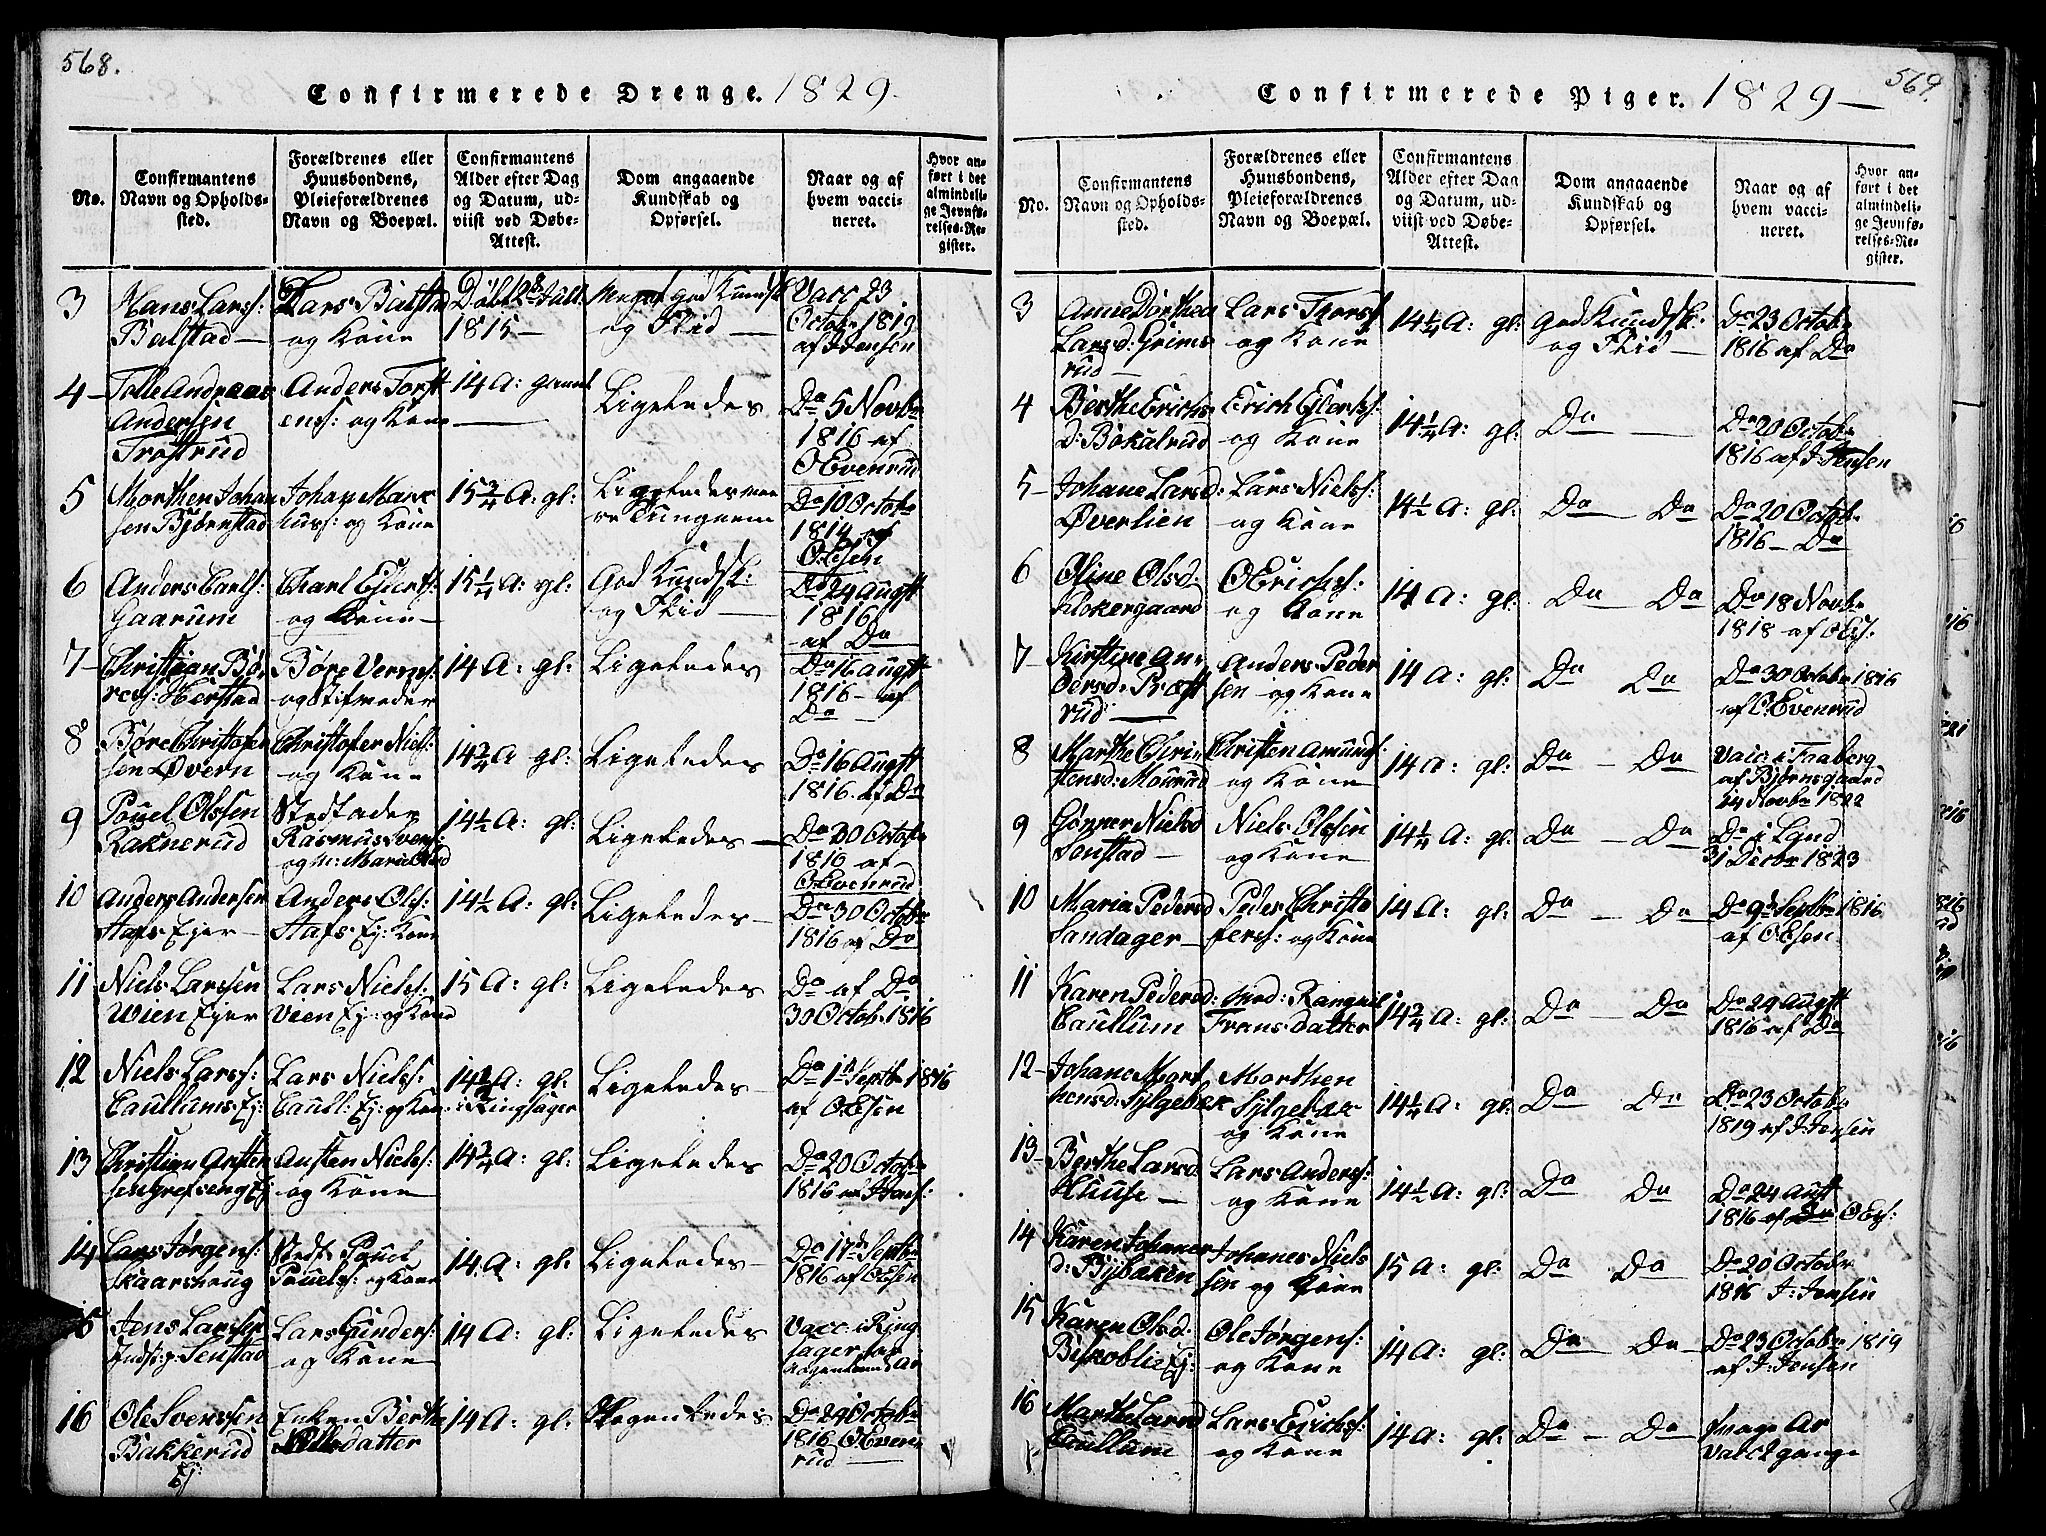 568.
Confirmerede Drenge. 1829-
No.
Confirmantens
Navn og Opholds-
sted.
Forældrenes eller
Huusbondens,
Pleieforældrenes
Navn og Boepæl.
Confirmantens
Alder efter Dag
og Datum, ud-
viist ved Døbe-
Attest.
Dom angaaende
Kundskab og
Opførsel.
Naar og af
hvem vacci-
neret.
Hvor an-
ført i det
almindeli-
ge Jevnfø-
relses-Re-
gister.
3
Hans Larss:
Balstad—
Lars Balstad
og Kone
Døbt 28 Juli
1815—
Meget god Kundsk
og Flid —
Vacc 23
Octobr 1819
af J Jensen
4—
Andersen
Trostrud
Anders Torst
ens: og Kone
14 A: gamel
Ligeledes
Do 5 Novbr
1816 af
O Evenrud
5
Morthen Johan
sen Bjørnstad
Johan Marc
huss: og Kone
15 3/4 A: gl:
Ligeledes
Do 10 Octobr
1814 af
6
Anders Carls:
Gaarum
Charl Ejlerts:
og Kone—
15 1/4 A: gl:
God Kundsk:
og Flid —
Do 24 Augst
1816
af Do
7—
Christian Bø,
res: Kerstad
Børe Vernes:
og Stifmoder
14 A: gl:
Ligeledes
Do 16 Augst
1816 — af
Do
8
Børe Christofer
sen Øvern
Christofer Niels:
og Kone
14 3/4 A gl:
Ligeledes
Do 16 Augst
1816. af Do
9
Pouel Olssen
Raknerud
Stedfader
Rasmus Svens:
14 1/2 A: gl:
Ligeledes —
Do 30 Octobr
1816 af
O Evenrud
10
Anders Andersen
Stafs Ejer —
Anders Ols:
Stafs Ej: Kone
14 1/2 A: gl:
Ligeledes —
Do 30 Octobr
1816 af Do
11
Niels Larssen
Wien Ejer
Lars Niels:
Vien Ej: og Kone
15 A: gl:
Ligeledes
Do af Do
30 Octobr 1816
12
Niels Larss:
Caullums Ej:
Lars Nielss:
Caull: Ej: og Kone
14 3/4 A: gl:
i Ringsager
Ligeledes —
Do 1ste Septbr 1816
af O Esen
13
Christian Austen
sen Grefseng Ej
Austen Nielss:
og Kone
14 3/4 A: gl:
Ligeledes
Do 20 Octobr
1816 af J Jens:
14
Lars Jørgens:
Skaarshaug
Stedf: Pouel
Pouels: og Kone
14 A: gl:
Ligeledes —
Do 17de Septbr
1816 af O Esen
15
Jens Larssen
Lars Gunders:
og Kone
14 A: gl:
Ligeledes
Vacc: i Ring
sager for
16
Ole Svenssen
Bakkerud
Ej
Enken Berthe
Nilsdatter
14 A: gl:
Do 24 Octobr
1816 O Even
rud —
569.
Confirmerede Piger. 1829—
No.
Confirmantens
Navn og Opholds-
sted.
Forældrenes eller
Huusbondens,
Pleieforældrenes
Navn og Boepæl.
Confirmantens
Alder efter Dag
og Datum, ud-
viist ved Døbe-
Attest.
Dom angaaende
Kundskab og
Opførsel.
Naar og af
hvem vacci-
neret.
Hvor an-
ført i det
almindeli-
ge Jevnfø-
relses-Re-
gister.
3
Anne Dorthea
Larsd: Grims
rud —
Lars Torss:
og Kone
14 1/4 A: gl:
God Kundsk:
og Flid —
Do 23 Octobr
1816 af Do
4
Berthe Erichs
d: Bøkalrud
Erich Ejlerts:
og Kone
14 1/4 A: gl:
Do —
Do 20 Octobr
1816 af J: Jensen
5—
Johane Larsd:
Øverlien
Lars Nielss:
og Kone
14 1/2 A: gl:
Do — Do
Do 20 Octob.
1816 — Do
6
Oline Olsd:
Klokergaard
O Erichs:
og Kone
14 A: gl:
Do Do
Do 18 Novbr
1818 af O Es:
7—
Kirstine An-
dersd: Præst
rud —
Anders Peder
sen — og Kone
14 A: gl:
Do Do
Do 30 Octobr 1816
af O. Evenrud
8
Marthe Chri-
stensd: Mourud
Christen Amunds:
og Kone
14 A: gl:
Do — Do
Vacc i Faaberg
af Bjørnsgaard
24 Novbr 1822
9
Gønner Nielsd
Senstad —
Niels Olssen
og Kone
14 1/4 A: gl:
Do — Do
Do i Land
31 Decbr 1823
10
Maria Pedersd
Sandager —
Peder Christo
ferss: og Kone
14 A: gl:
Do — Do
Do 9de Septbr 1816
af O Esen.
11
Karen Pedersd:
Caullum
Mod: Rangnil
Fransdatter
14 3/4 A: gl:
Do — Do
Do 24 Augst
1816 af Do
12—
Johane Mort
hensd: Sylgebak
Morthen
Sylgebak
og Kone
14 1/4 A: gl:
Do Do
Do 23 Octobr
1819 af J: Jensen
13—
Berthe Larsd:
Huuse —
Lars Anderss:
og Kone
14 1/2 A: gl:
Do Do
Do 24 Aust
1816 af Do O Es:
14
Karen Johanes
d: Bybaken
Johanes Niels
sen og Kone
15 A: gl:
Do Do
Do 20 Octobr
1816 J: Jensen
15
Karen Olsd:
Biskoblie Ej:
Ole Jørgens:
og Kone
14 A: gl:
Do Do —
Do 23 Octobr 1819
af J: Jensen
16
Marthe Larsd
Caullum
Lars Erichss:
og Kone
14 A: gl:
Do — Do
Vacc 2 gange